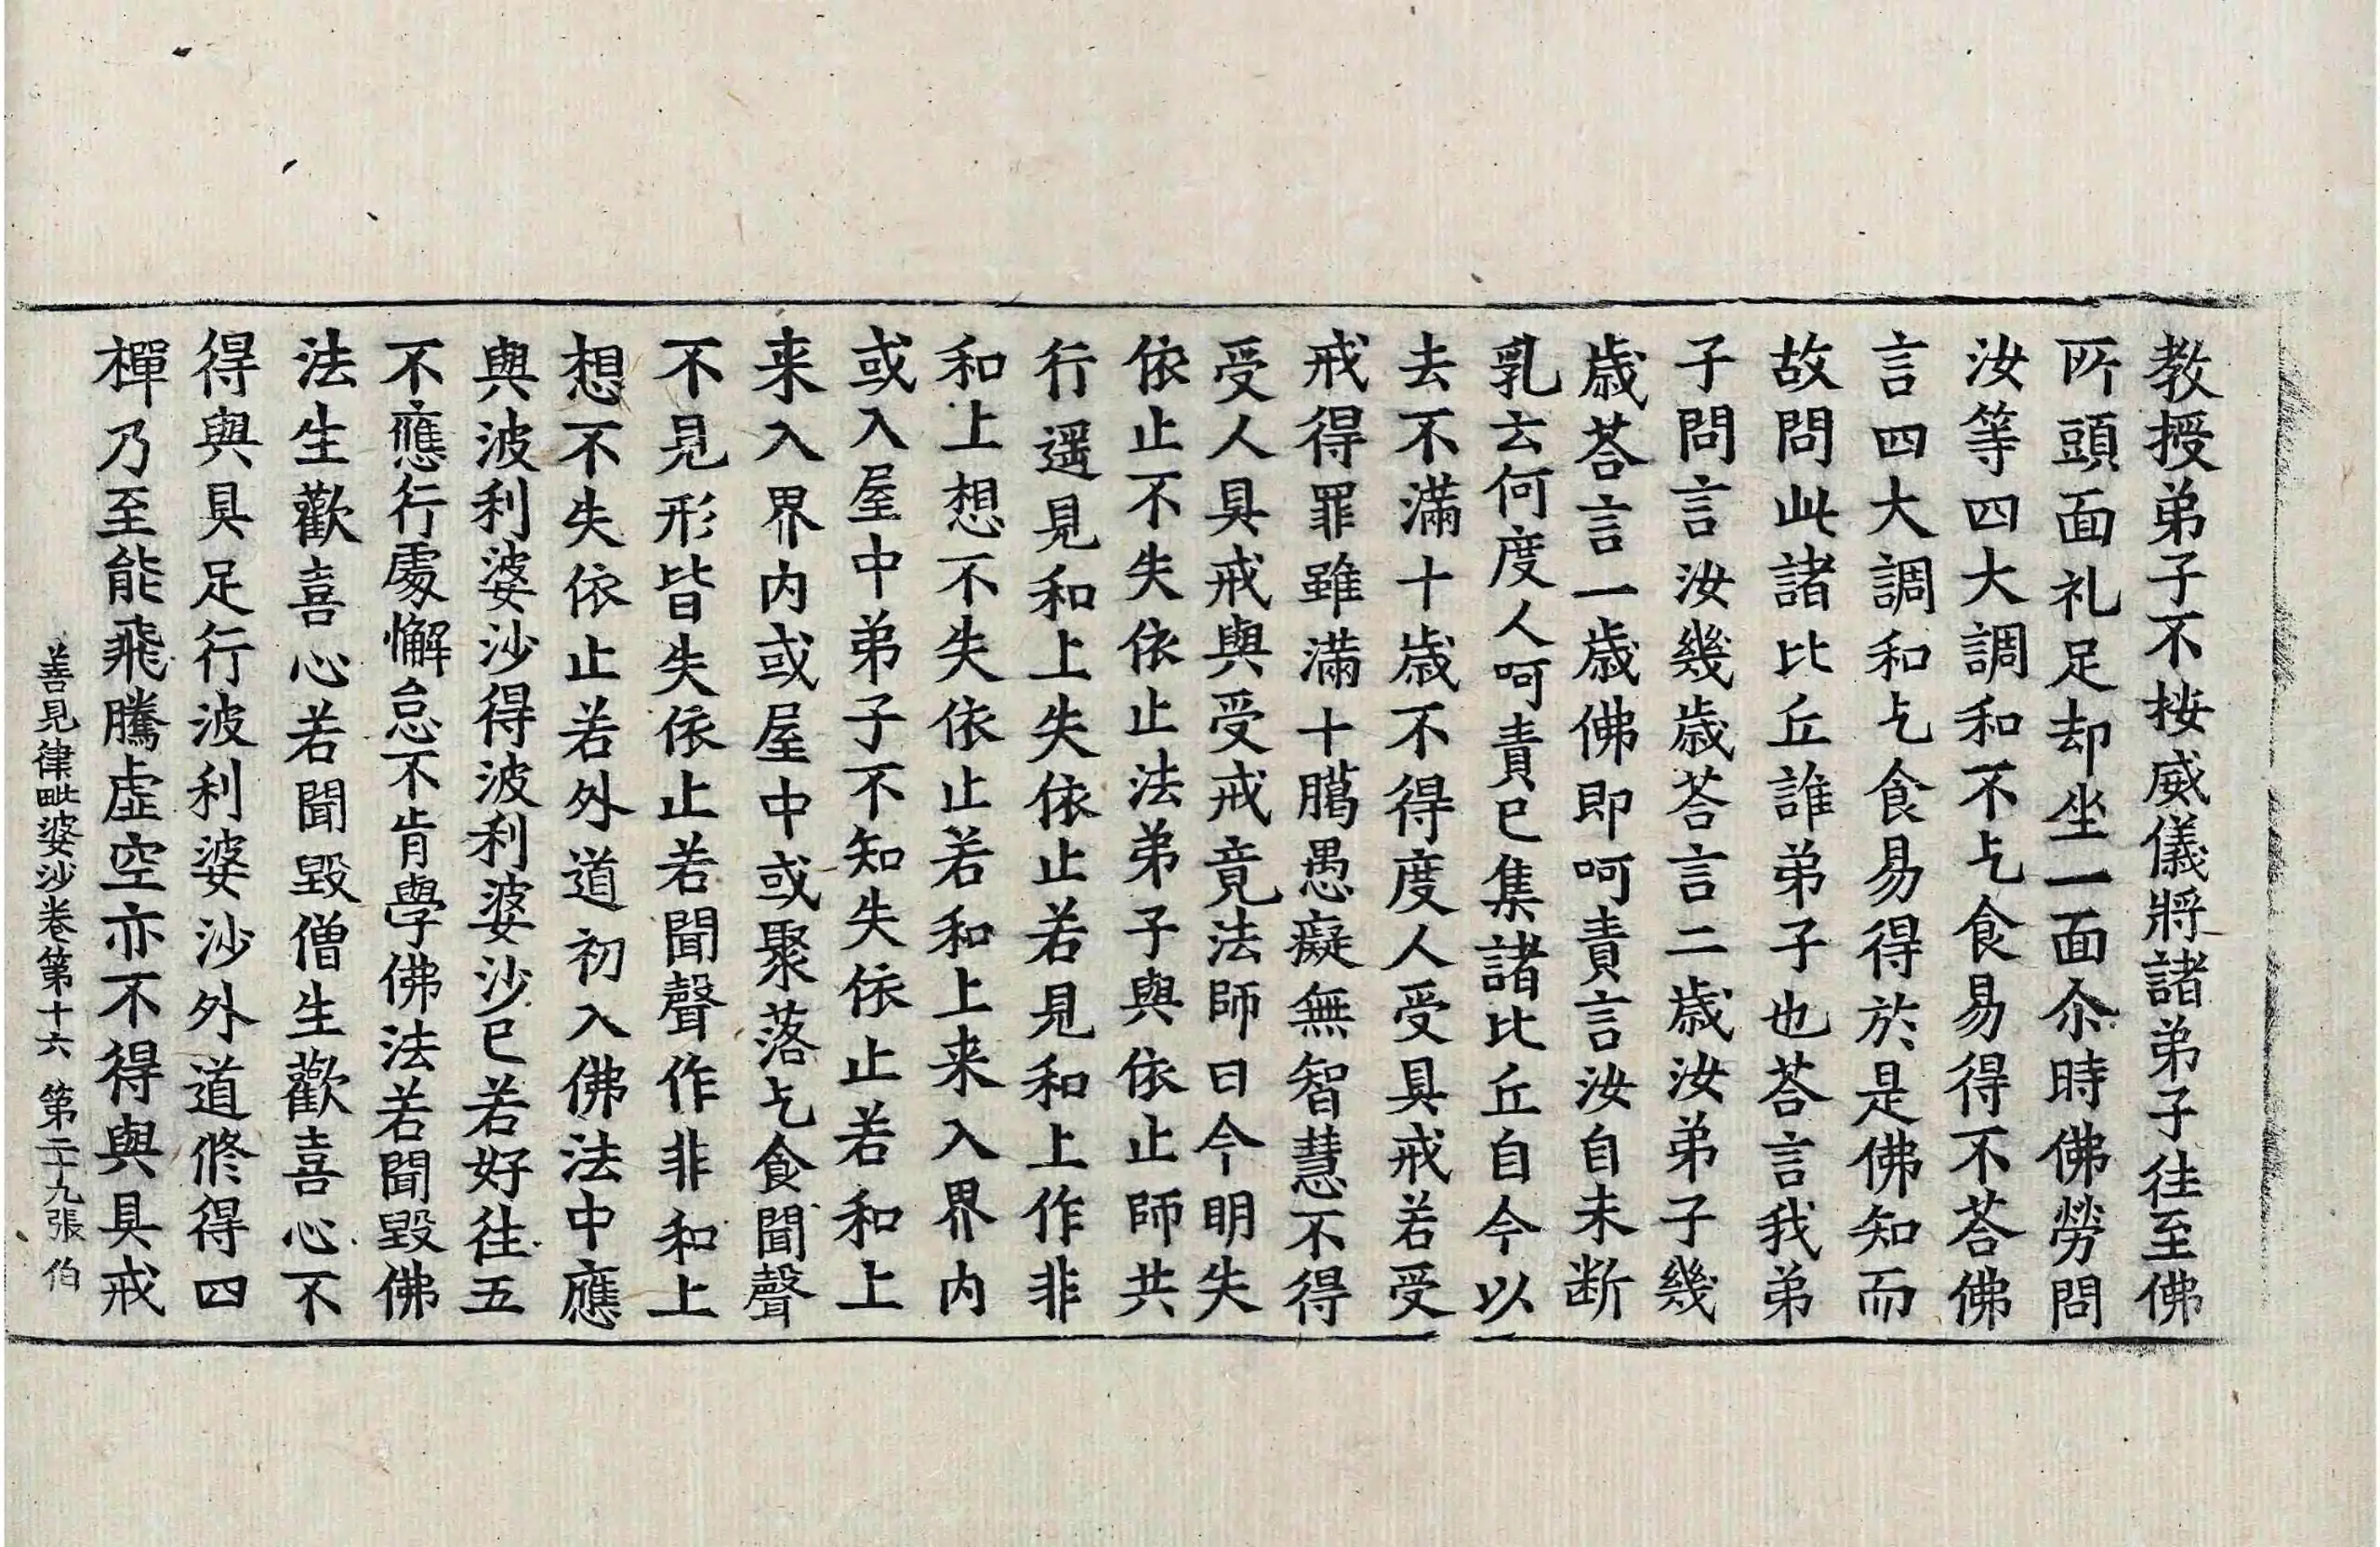 教授弟子不按威儀將諸弟子往至佛
所頭面礼足却坐一面尒時佛勞問
汝等四大調和不乞食易得不荅佛
言四大調和乞食易得於是佛知而
故問此諸比丘誰弟子也荅言我弟
子問言汝幾歳荅言二歳汝弟子幾
歳荅言一歳佛即呵責言汝自未断
乳云何度人呵責已集諸比丘自今以
去不滿十歳不得度人受具戒若受
戒得罪雖滿十臈愚癡無智慧不得
受人具戒與受戒竟法師曰今明失
依止不失依止法弟子與依止師共
行遥見和上失依止若見和上作非
和上想不失依止若和上来入界内
或入屋中弟子不知失依止若和上
来入界内或屋中或聚落乞食聞聲
不見形皆失依止若聞聲作非和上
想不失依止若外道初入佛法中應
與波利婆沙得波利婆沙已若好往五
不應行處懈怠不肯學佛法若聞毀佛
法生歡喜心若聞毀僧生歡喜心不
得與具足行波利婆沙外道修得四
禪乃至能飛騰虛空亦不得與具戒
善見律毗婆沙卷第十六 第二十九張 伯